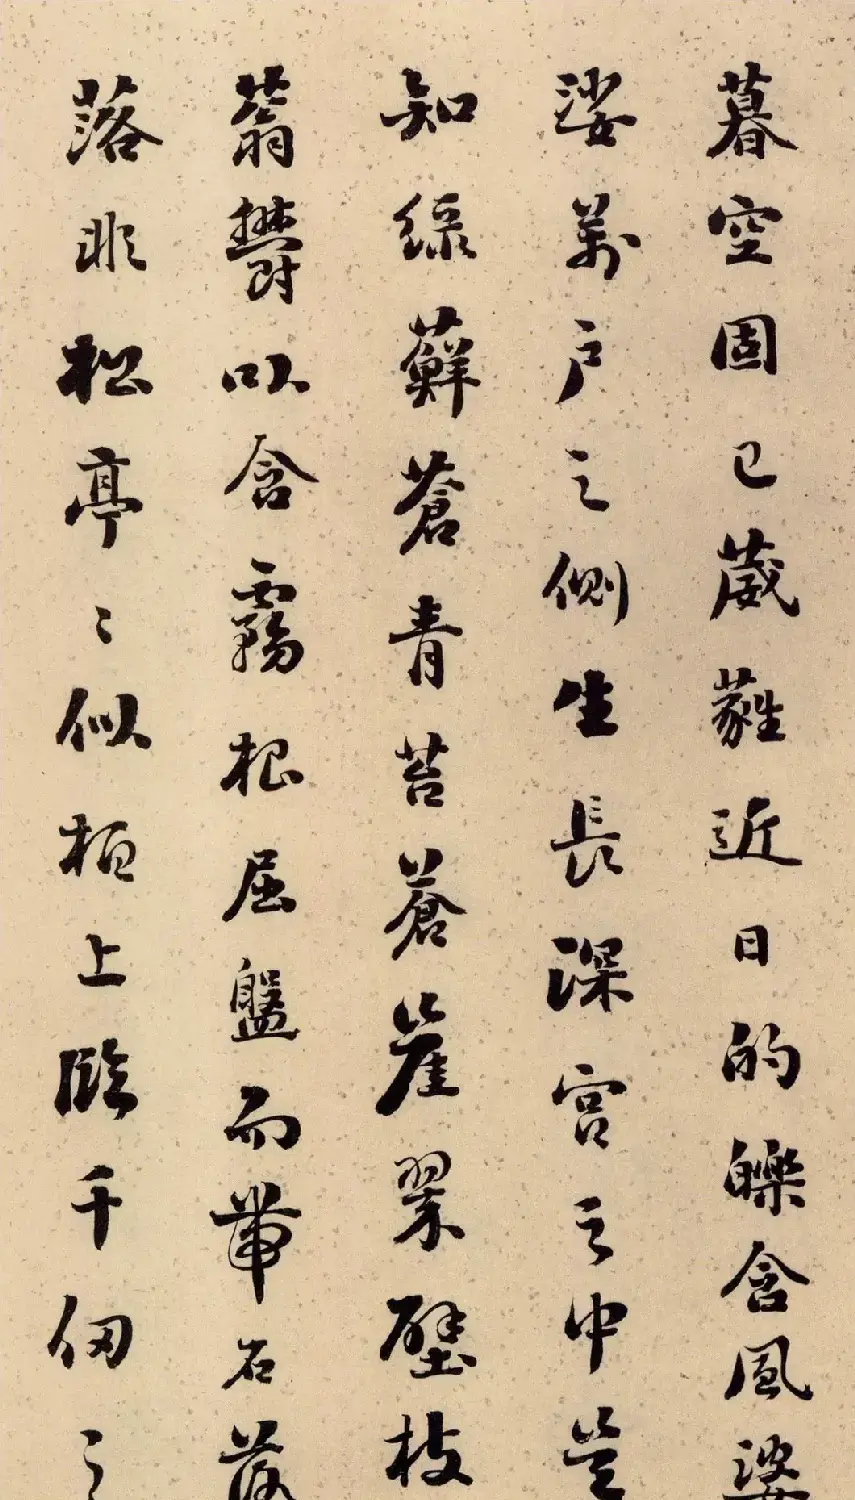 暮空固已葳蕤近日的皪含風婆
娑萬户之側生長深宫之中豈
知綠蘚蒼青苔蒼崖翠壁枝
蓊欝以含霧根屈盤而帶石落
落非松亭〻似栢上臨千仞之